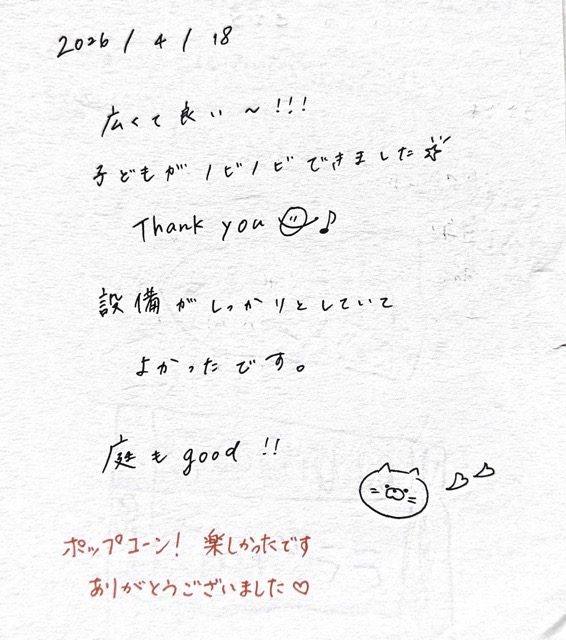 2026/4/18
広くて良い〜!!!
子どもがノビノビできました
Thank you ♪
設備がしっかりとしていて
よかったです。
庭もgood!!
ポップコーン! 楽しかったです
ありがとうございました♡